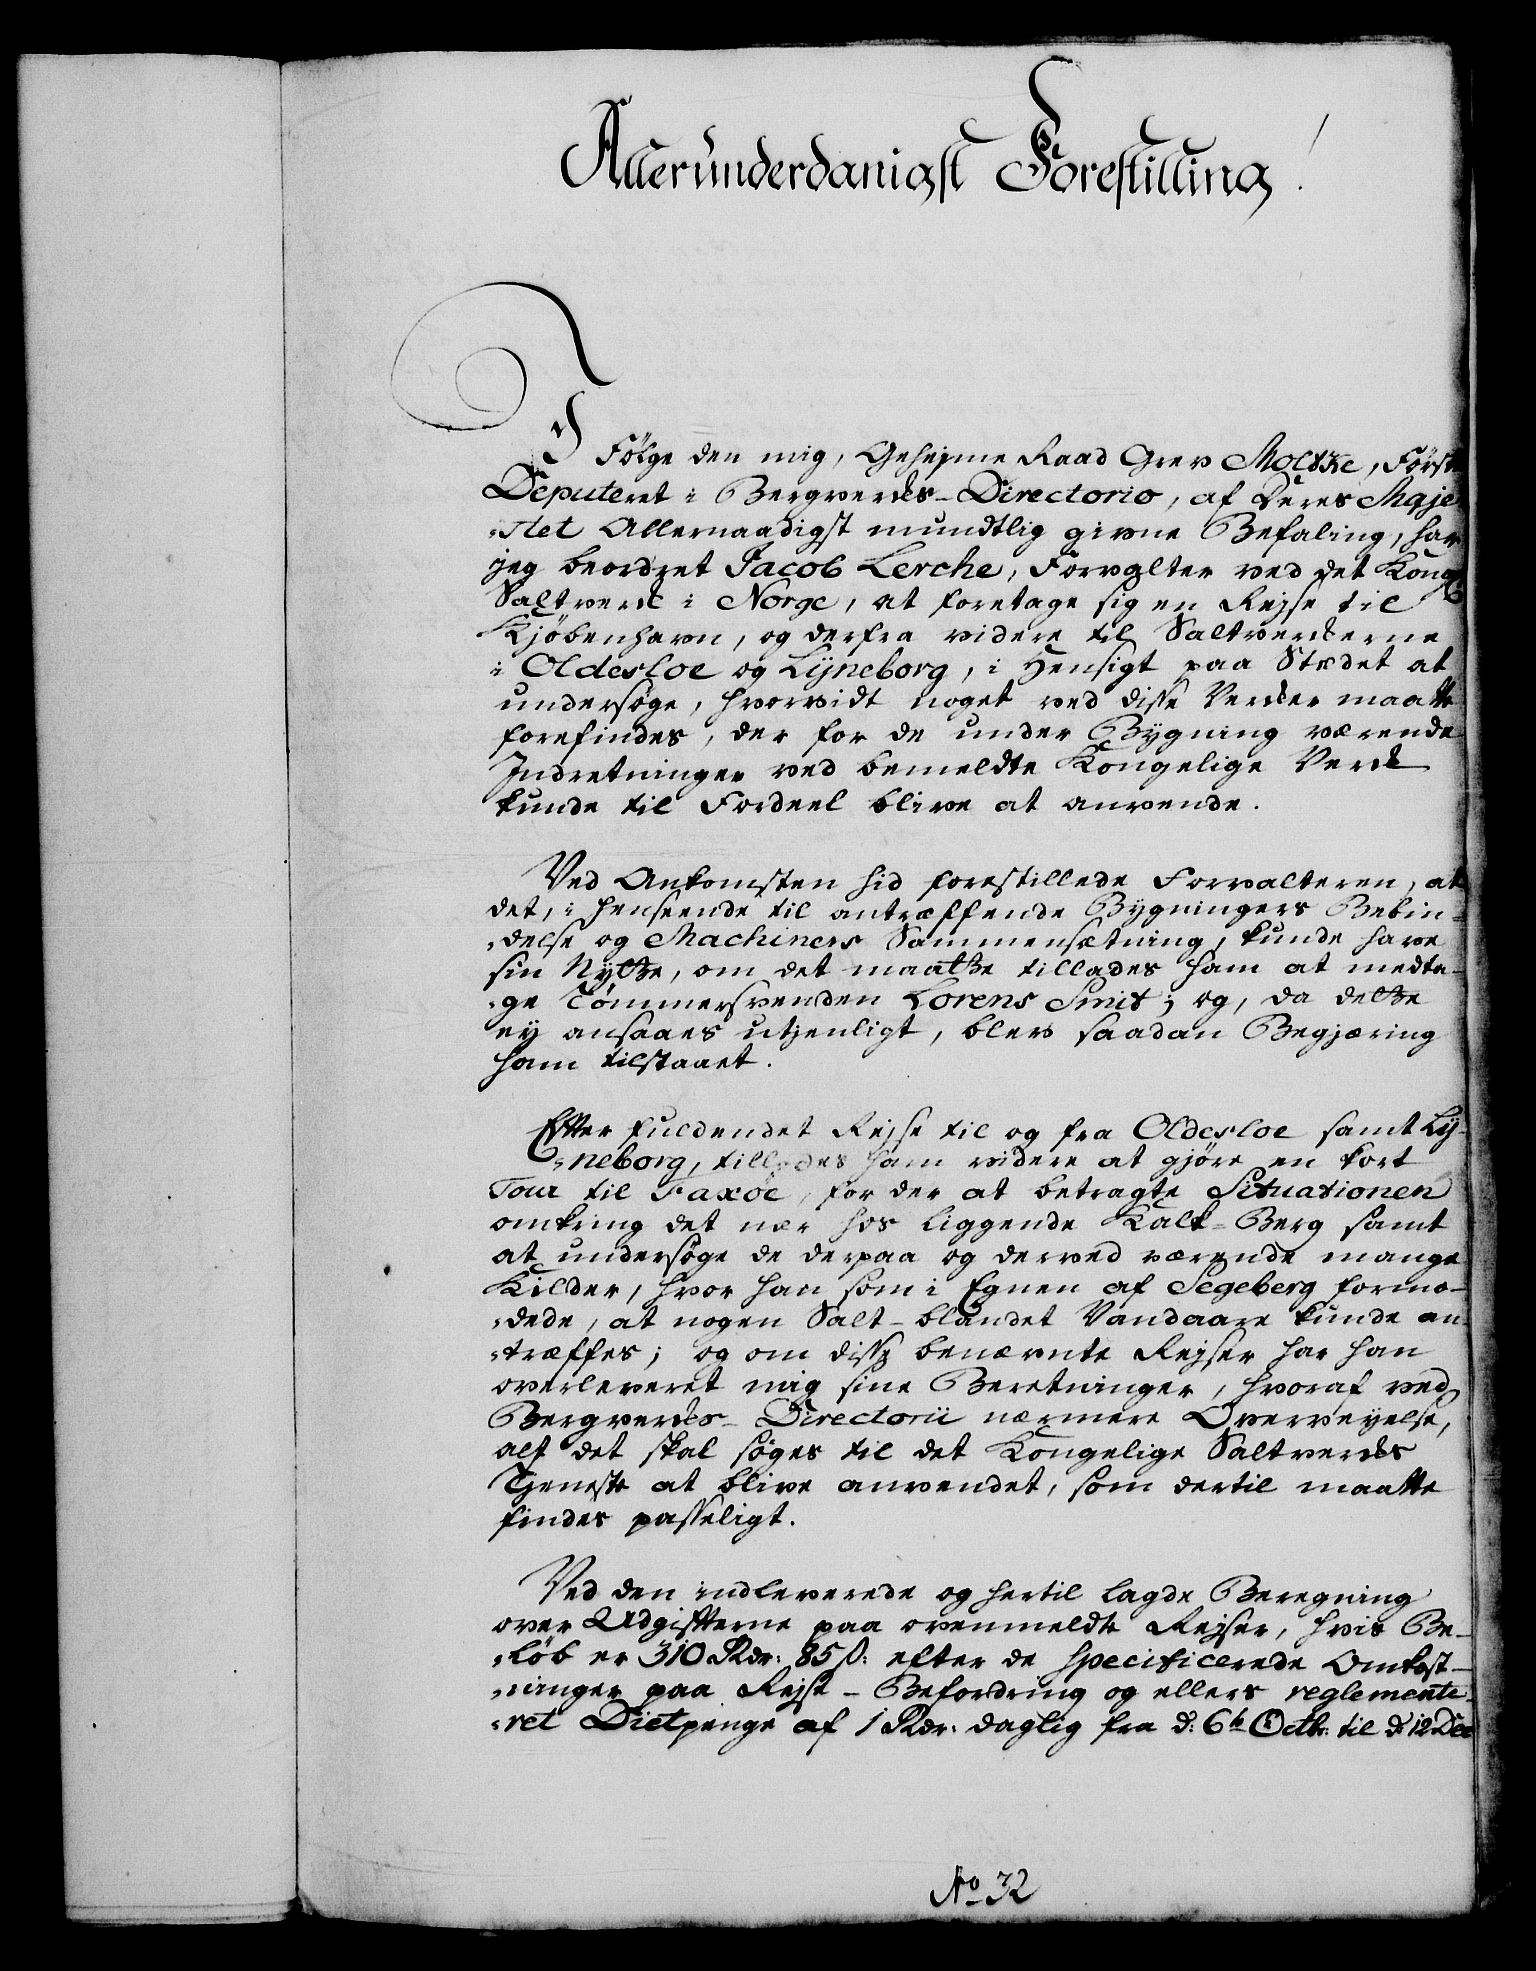 Allerunderdanigst Forestilling!
I Følge den mig, Geheime Raad Grev Moltke, Første
Deputeret i Bergverks-Directorio, af Deres Maje-
stet Allernaadigst mundtlig givne Befaling, har
jeg beordret Jacob Lerche, Forvalter ved det Kongl.
Saltverk i Norge, at foretage sig en Rejse til
Kjøbenhavn, og derfra videre til Saltverkerne
i Oldesloe og Lyneborg, i Hensigt paa Stædet at
undersøge, hvorvidt noget ved disse Verker maatte
forefindes, der for de under Bygning værende
Indretninger ved bemeldte Kongelige Verk
kunde til Fordeel blive at anvende.
Ved Ankomsten hid forestillede Forvalteren, at
det, i henseende til antræffende Bygningers Bebin-
delse og Machiners Sammensætning, kunde have
sin Nytte, om det maatte tillades ham at medta-
ge Tømmersvenden Lorens Smit; og, da dette
ey ansaaes utjenligt, blev saadan Begjæring
ham tilstaaet.
Efter fuldendet Rejse til og fra Oldesloe samt Ly-
neborg, tillodes ham videre at gjøre en kort
Tour til Faxøe, for der at betragte Situationen
omkring det nær hos liggende Kalk-Berg samt
at undersøge de derpaa og derved værende mange
Kilder, hvor han som i Egnen af Segeberg formo-
dede, at nogen Salt-blandet Vandaare kunde an-
træffes; og om disse benævnte Rejser har han
overleveret mig sine Beretninger, hvoraf ved
Bergverks-Directorii nærmere Overveyelse,
alt det skal søges til det Kongelige Saltverks
Tjeneste at blive anvendet, som dertil maatte
findes passeligt.
Ved den indleverede og hertil lagde Beregning
over Udgifterne paa ovenmeldte Rejser, hvis Be-
løb er 310 Rdr: 85 ß: efter de specificerede Omkost-
ninger paa Rejse-Befordring og ellers reglemente-
ret Dietpenge af 1 Rdr: daglig fra d: 6te Octbr: til d: 12 Dec
No 32